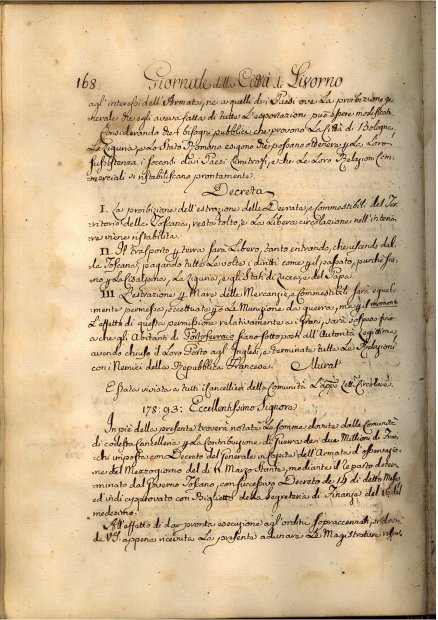 168 Giornale della Città di Livorno
agl'interessi dell'Armata, ne a quelle dei Paesi ove La proibizione ge-
nerale che egli aveva fatta di tutte L'esportazioni può essere modificata
Considerando che i bisogni pubblici che provono La Città di Bologna,
La Liguria, e Lo Stato Romano esigono che possano ottenere La Loro
sussistenza i soccorsi dei Paesi Limitrofi, e che Le Loro Relazioni Com-
merciali si ristabiliscano prontamente.
Decreta
I. La proibizione dell'estrazione delle Derrate, e Commestibili del Ter-
ritorio della Toscana, resta tolta, e La Libera circolazione nell'interio-
re viene ristabilita.
II. Il trasporto per terra sarà Libero, tanto entrando, che uscendo dal-
la Toscana, pagando tutte Le volte i diritti come pel passato, purchè sia-
no per La Cisalpina, La Liguria, e gli Stati di Lucca, e del Papa.
III L'estrazione per Mare delle Mercanzie, e Commestibili sarà equal-
mente permessa, eccettuate però Le Munizione da guerra, ma per il momento
L'effetto di questa permissione relativamente ai Grani, sarà sospeso fino
a che gli Abitanti di Portoferraio siano sottoposti all'Autorità Legittima,
avendo chiuso il Loro Porto agl'Inglesi, e terminate tutte Le Relazioni
con i Nemici della Repubblica Francese. Murat
E stata inviata a tutti i Cancellieri della Comunità L'appie Lettera Circolare
175: 93: Eccellentissimo Signore
In piè della presente troverà notate Le somme dovute dalle Comunità
di codesta Cancelleria per La Contribuzione di Guerra dei due Millioni di Fran-
chi imposta con Decreto del Generale in Capo dell'Armata d'Osservazio-
ne del Mezzogiorno del dì Marzo Stante, mediante il reparto deter-
minato dal Governo Toscano, con successivo Decreto de 14 di detto Mese
ed indi approvato con Biglietto della Segreteria di Finanze del 16 del
medesimo.
All'effetto di dar pronta esecuzione agl'ordini sopraccennati,
VS. appena ricevuta La presente adunare Le Magistrature